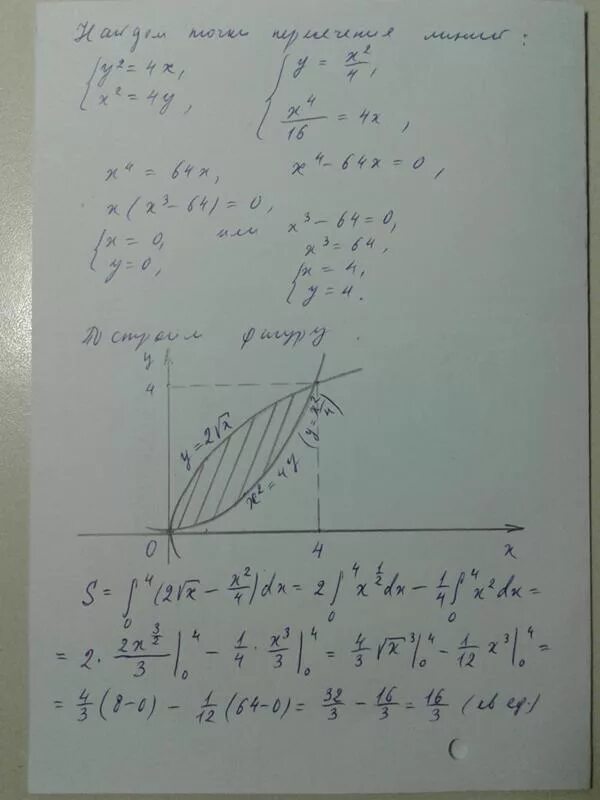 Найдем точки пересечения линий:
{y² = 4x, {y = x²/4,
x² = 4y, x⁴/16 = 4x,
x⁴ = 64x, x⁴ - 64x = 0,
x(x³ - 64) = 0,
{x = 0, или x³ - 64 = 0,
y = 0, x³ = 64,
{x = 4,
y = 4.
Построим фигуру.
y
4
y = 2√x
x² = 4y (y = x²/4)
0 4 x
S = ∫₀⁴ (2√x - x²/4) dx = 2 ∫₀⁴ x^(1/2) dx - 1/4 ∫₀⁴ x² dx =
= 2 · 2x^(3/2)/3 |₀⁴ - 1/4 · x³/3 |₀⁴ = 4/3 √x³ |₀⁴ - 1/12 x³ |₀⁴ =
= 4/3 (8-0) - 1/12 (64-0) = 32/3 - 16/3 = 16/3 (кв ед.)